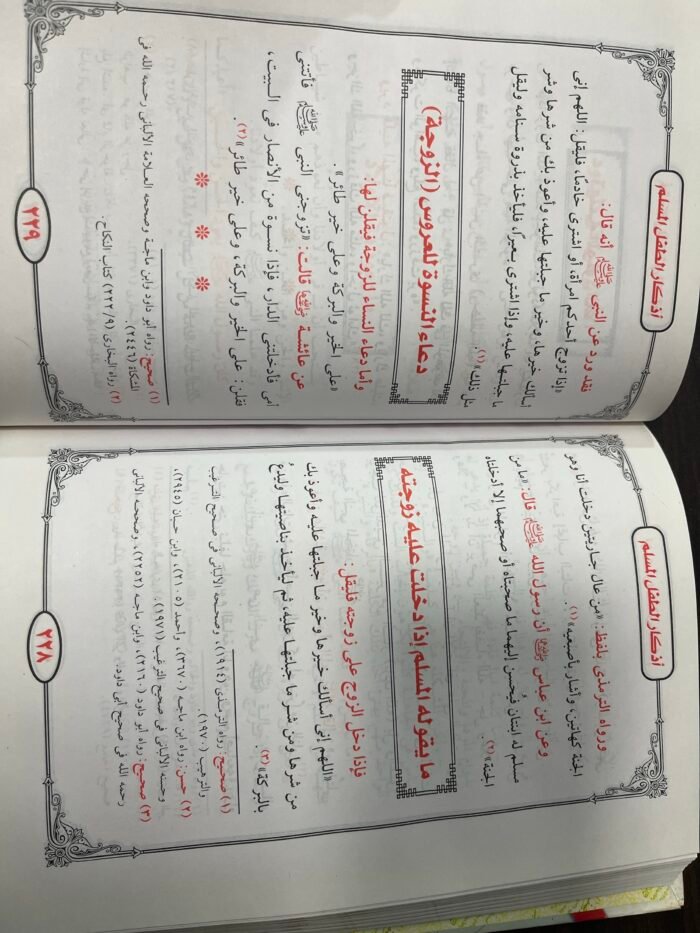 أذكار الطفل المسلم
ورواه الترمذى بلفظ: «من عال جاريتين دخلت أنا وهو
الجنة كهاتين، وأشار بأصبعيه» (١).
وعن ابن عباس رضي الله عنهما أن رسول الله ﷺ قال: «ما من
مسلم له ابنتان فيُحسن إليهما ما صحبتاه أو صحبهما إلا أدخلتاه
الجنة» (٢).
ما يقوله المسلم إذا دخلت عليه زوجته
فإذا دخل الزوج على زوجته فليقل:
«اللهم إنى أسألك خيرها وخير ما جبلتها عليه وأعوذ بك
من شرها ومن شر ما جبلتها عليه، ثم ليأخذ بناصيتها وليدعُ
بالبركة» (٣).
(١) صحيح: رواه الترمذى (١٩١٤)، وصححه الألبانى فى صحيح الترغيب
والترهيب (١٩٧٠).
(٢) حسن: رواه ابن ماجه (٣٦٧٠)، وأحمد (٢١٠٥)، وابن حبان (٢٩٤٥)،
وحسنه الألبانى فى صحيح الترغيب (١٩٧١).
(٣) صحيح: رواه أبو داود (٢١٦٠)، وابن ماجه (٢٢٥٢)، وصححه الألبانى
رحمه الله فى صحيح أبى داود.
٢٢٨
أذكار الطفل المسلم
فقد ورد عن النبى ﷺ أنه قال:
«إذا تزوج أحدكم امرأة، أو اشترى خادمًا، فليقل: اللهم إنى
أسألك خيرها، وخير ما جبلتها عليه، وأعوذ بك من شرها وشر
ما جبلتها عليه، وإذا اشترى بعيرًا، فليأخذ بذروة سنامه وليقل
مثل ذلك» (١).
دعاء النسوة للعروس (الزوجة)
وأما دعاء النساء للزوجة فيقلن لها:
«على الخير والبركة وعلى خير طائر».
عن عائشة رضي الله عنها قالت: «تزوجنى النبى ﷺ فأتتنى
أمى فأدخلتنى الدار، فإذا نسوة من الأنصار فى البيت،
فقلن: على الخير والبركة، وعلى خير طائر» (٢).
* * *
(١) صحيح: رواه أبو داود وابن ماجة وصححه العلامة الألبانى رحمه الله فى
المشكاة (٢٤٤٦).
(٢) رواه البخارى (٢٢٢/٩) كتاب النكاح.
٢٢٩